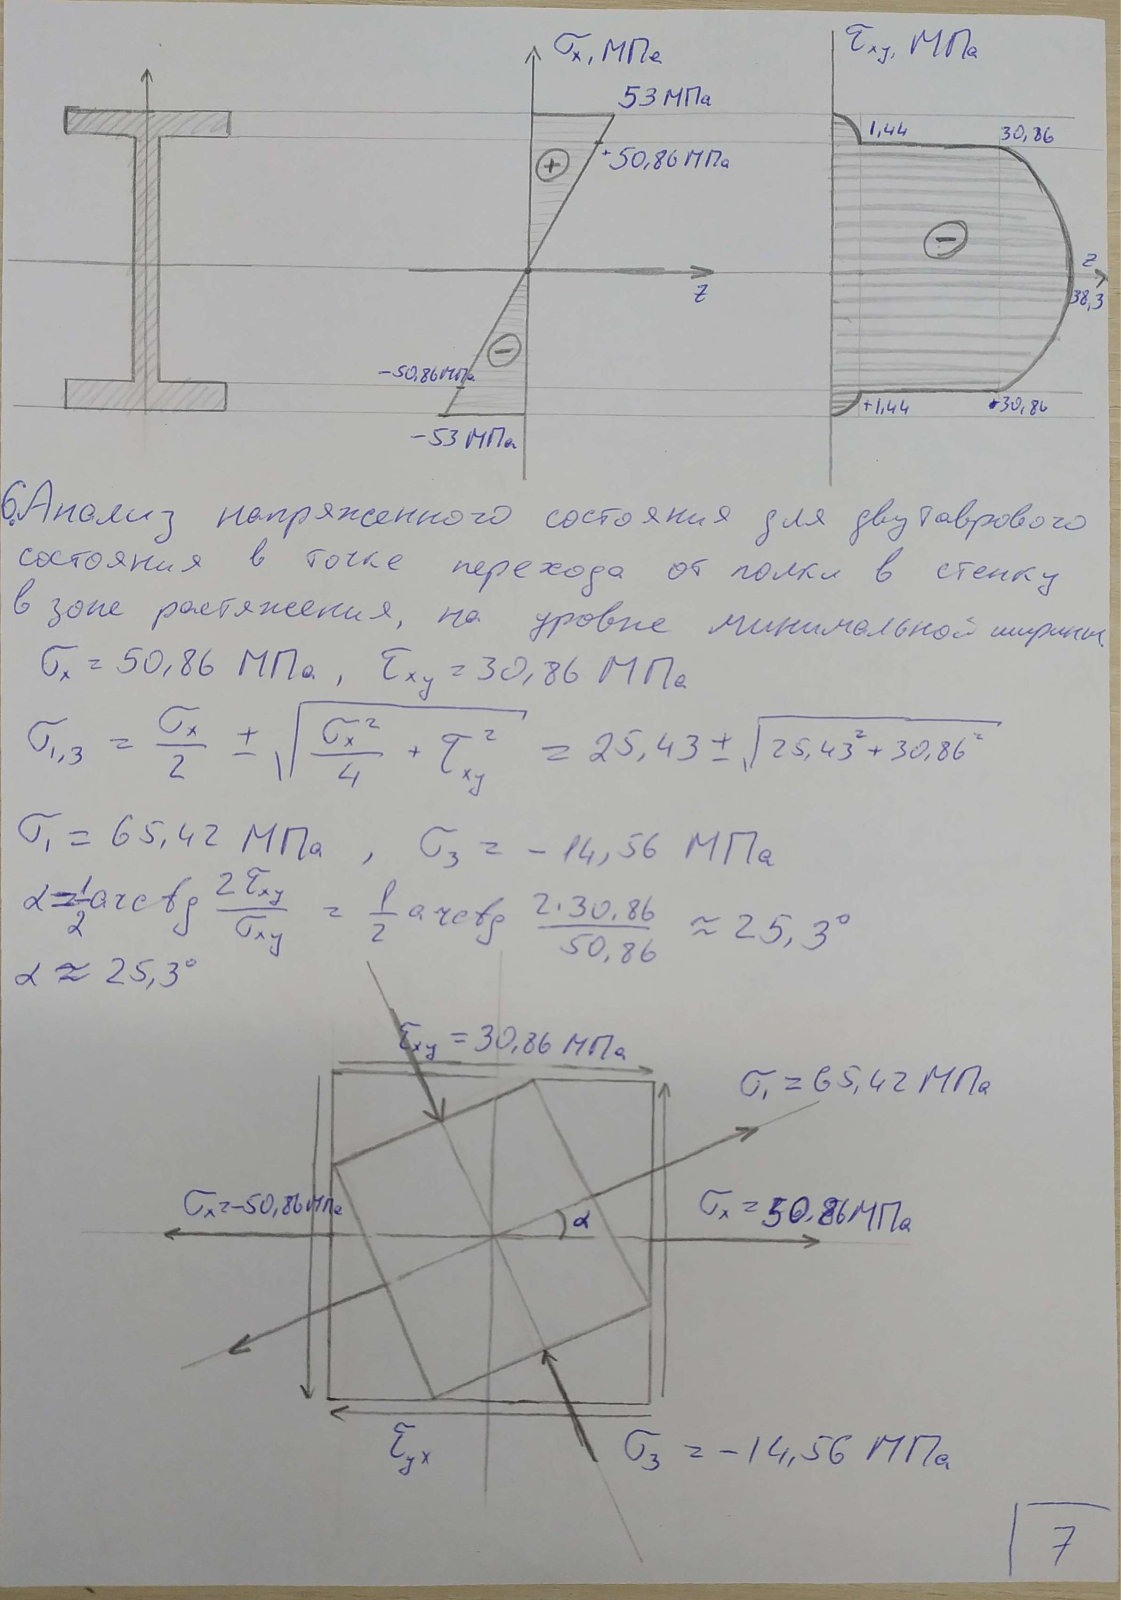 σx, МПа
τxy, МПа
53 МПа
1,44
30,86
+50,86 МПа
+
-
z
z
38,3
-
-50,86 МПа
+1,44
+30,86
-53 МПа
6. Анализ напряженного состояния для двутаврового
состояния в точке перехода от полки в стенку
в зоне растяжения, на уровне минимальной ширины.
σx = 50,86 МПа, τxy = 30,86 МПа
σ1,3 = σx/2 ± √(σx²/4 + τxy²) = 25,43 ± √(25,43² + 30,86²)
σ1 = 65,42 МПа, σ3 = -14,56 МПа
α = 1/2 arctg 2τxy/σxy = 1/2 arctg 2·30,86/50,86 ≈ 25,3°
α ≈ 25,3°
τxy = 30,86 МПа
σ1 = 65,42 МПа
σx = -50,86 МПа
α
σx = 50,86 МПа
τyx
σ3 = -14,56 МПа
7